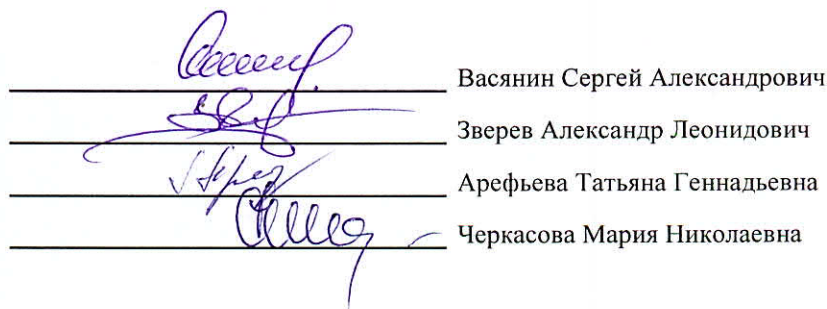 Васянин Сергей Александрович
Зверев Александр Леонидович
Арефьева Татьяна Геннадьевна
Черкасова Мария Николаевна